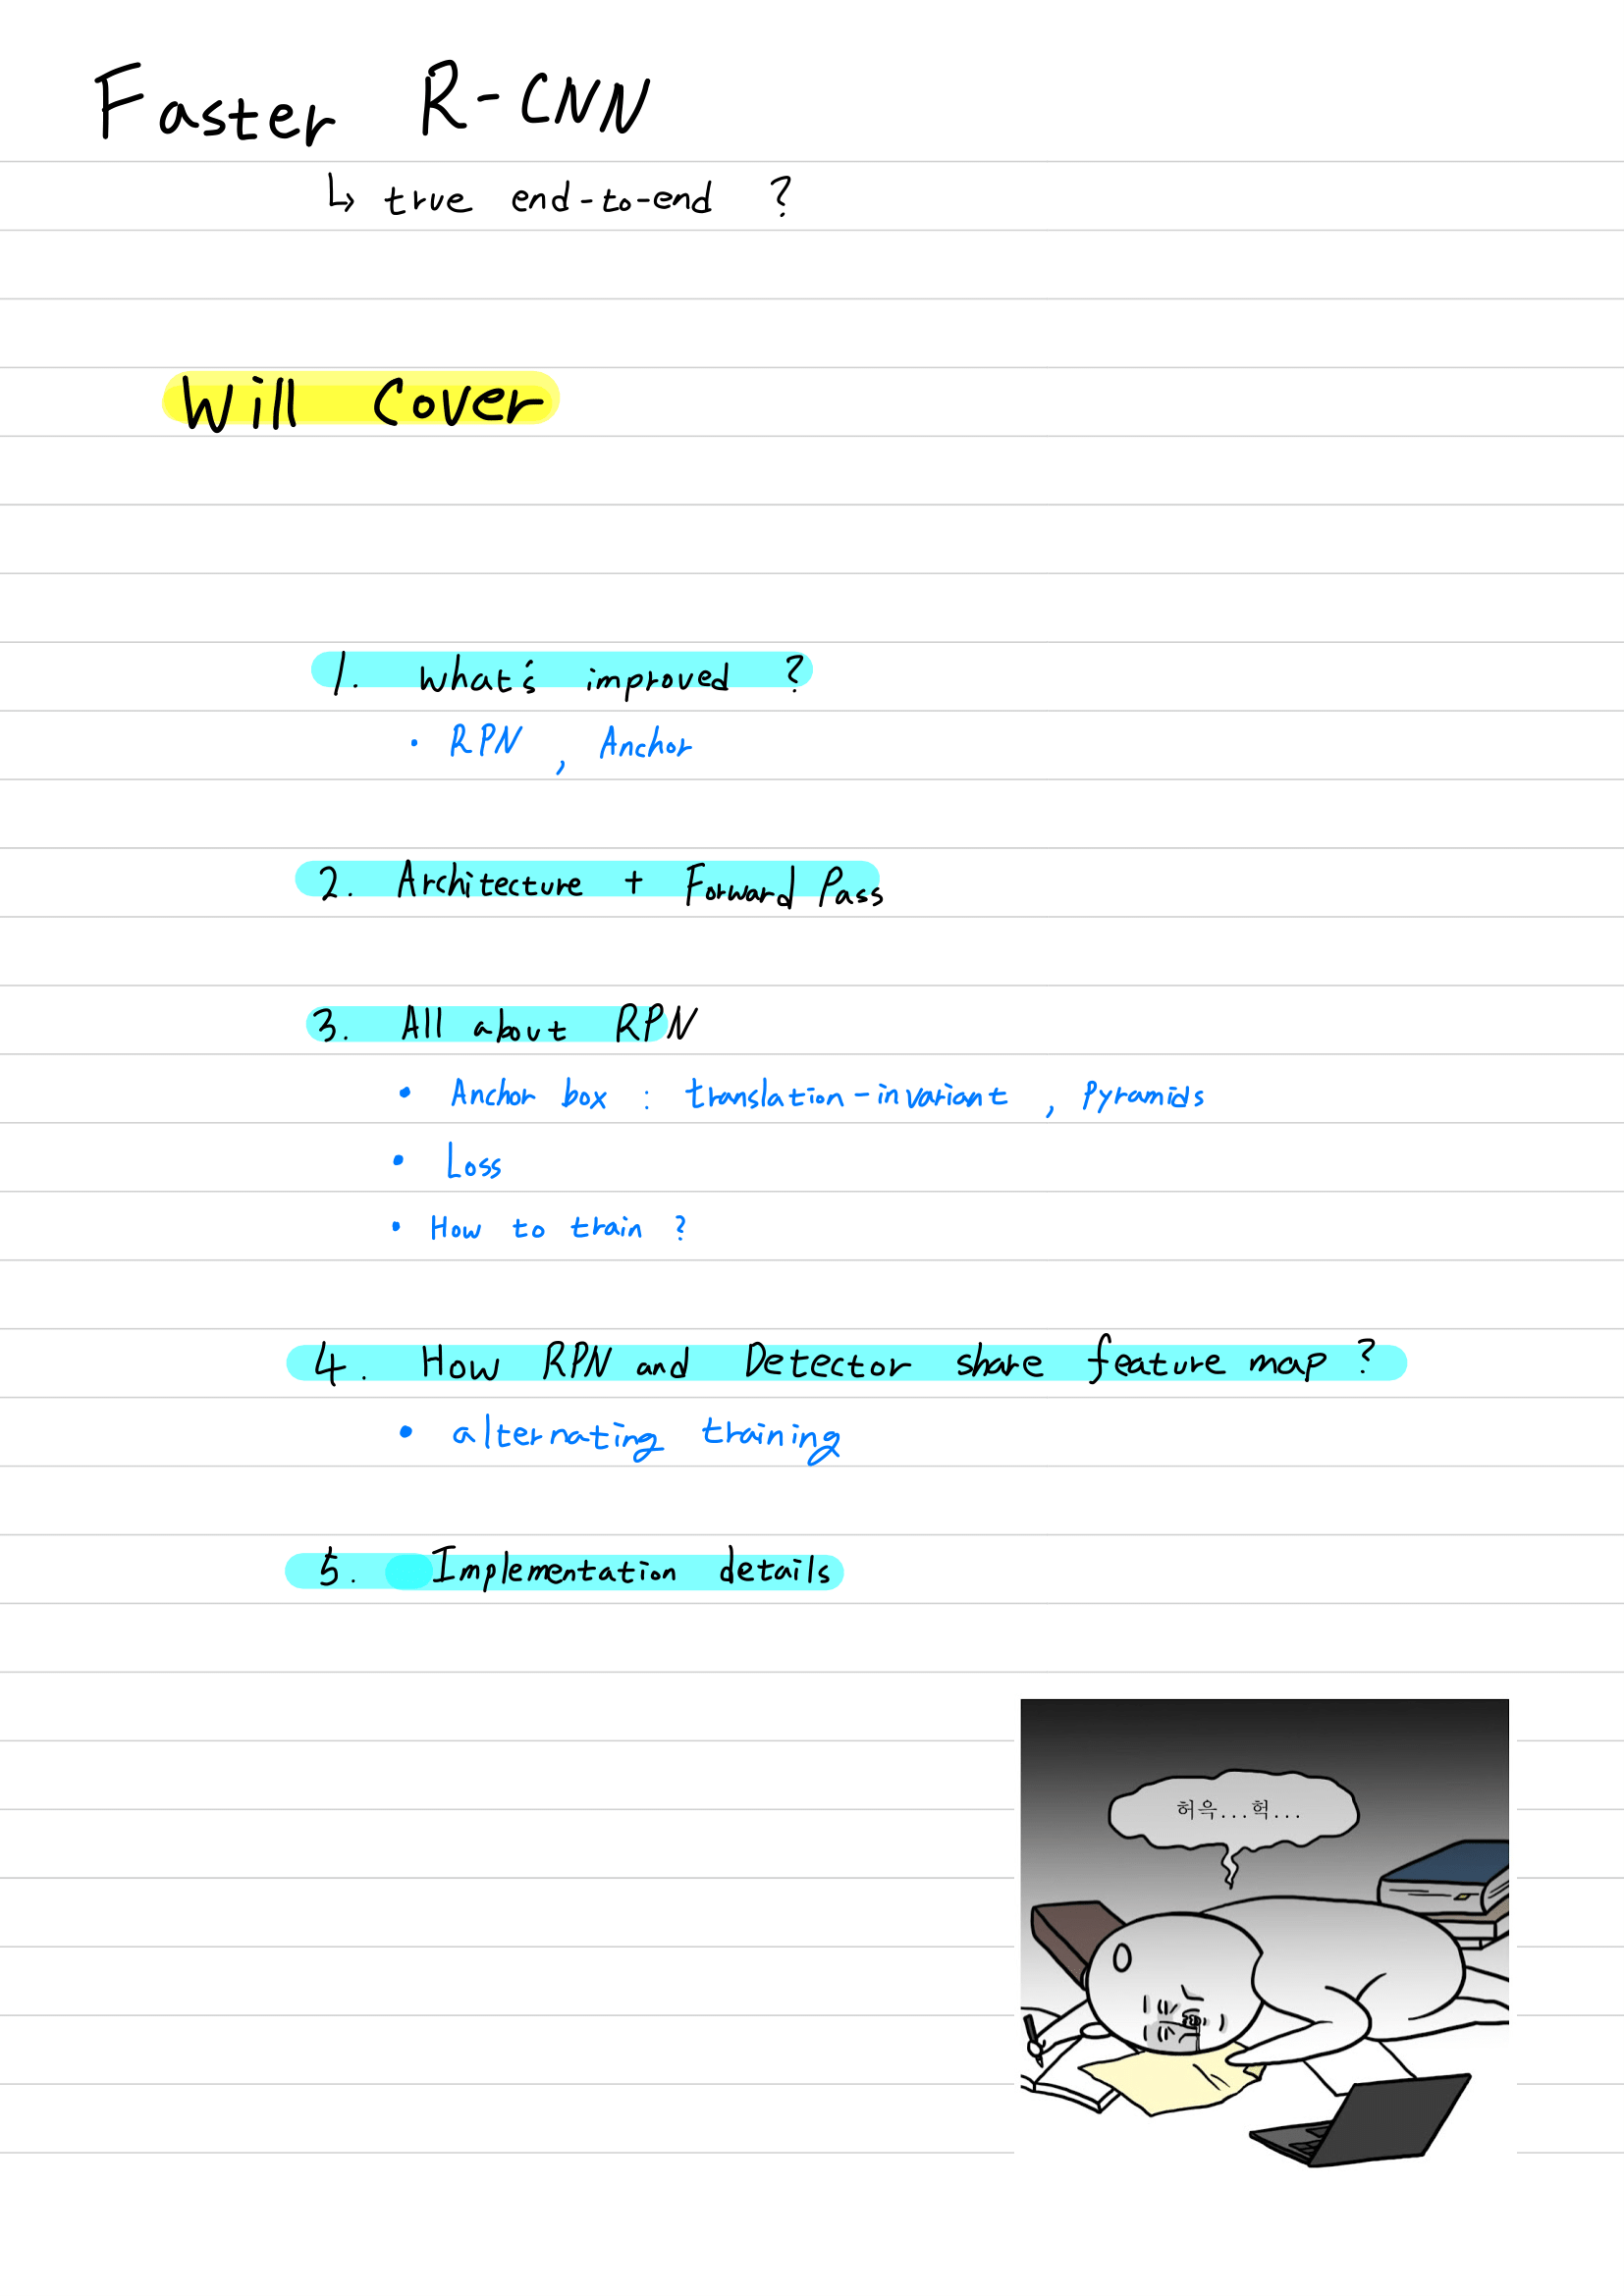 Faster R-CNN
↳ true end-to-end ?
Will Cover
1. What's improved ?
• RPN , Anchor
2. Architecture + Forward Pass
3. All about RPN
• Anchor box : translation-invariant , Pyramids
• Loss
• How to train ?
4. How RPN and Detector share feature map ?
• alternating training
5. Implementation details
허윽...헉...